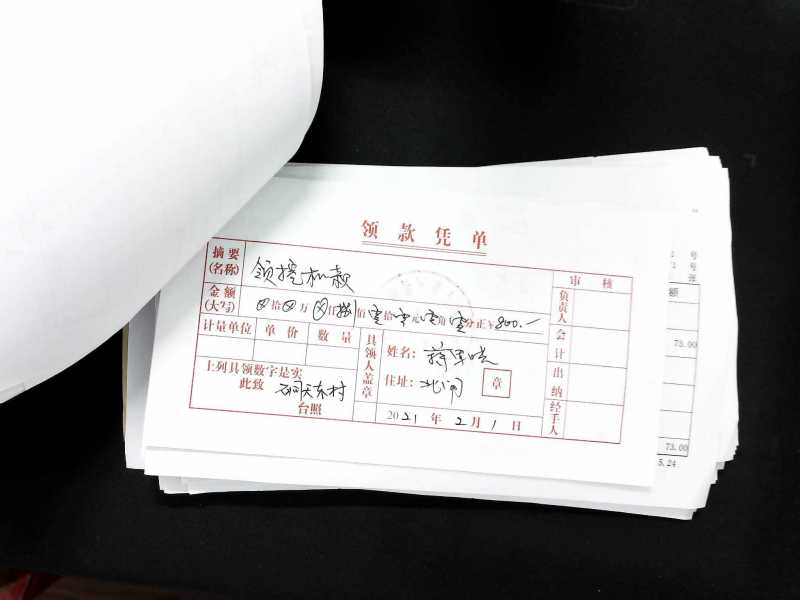 领款凭单
摘要(名称) 领挖机款 审核
金额(大写) ⊗拾⊗万⊗仟捌佰零拾零元零角零分正￥800.—
负责人
计量单位 单价 数量
具领人盖章
姓名：
会计
上列具领数字是实
此致
台照
住址： 章
出纳
2021年2月1日
经手人
号
号
张
额
73.00
73.00
5.24